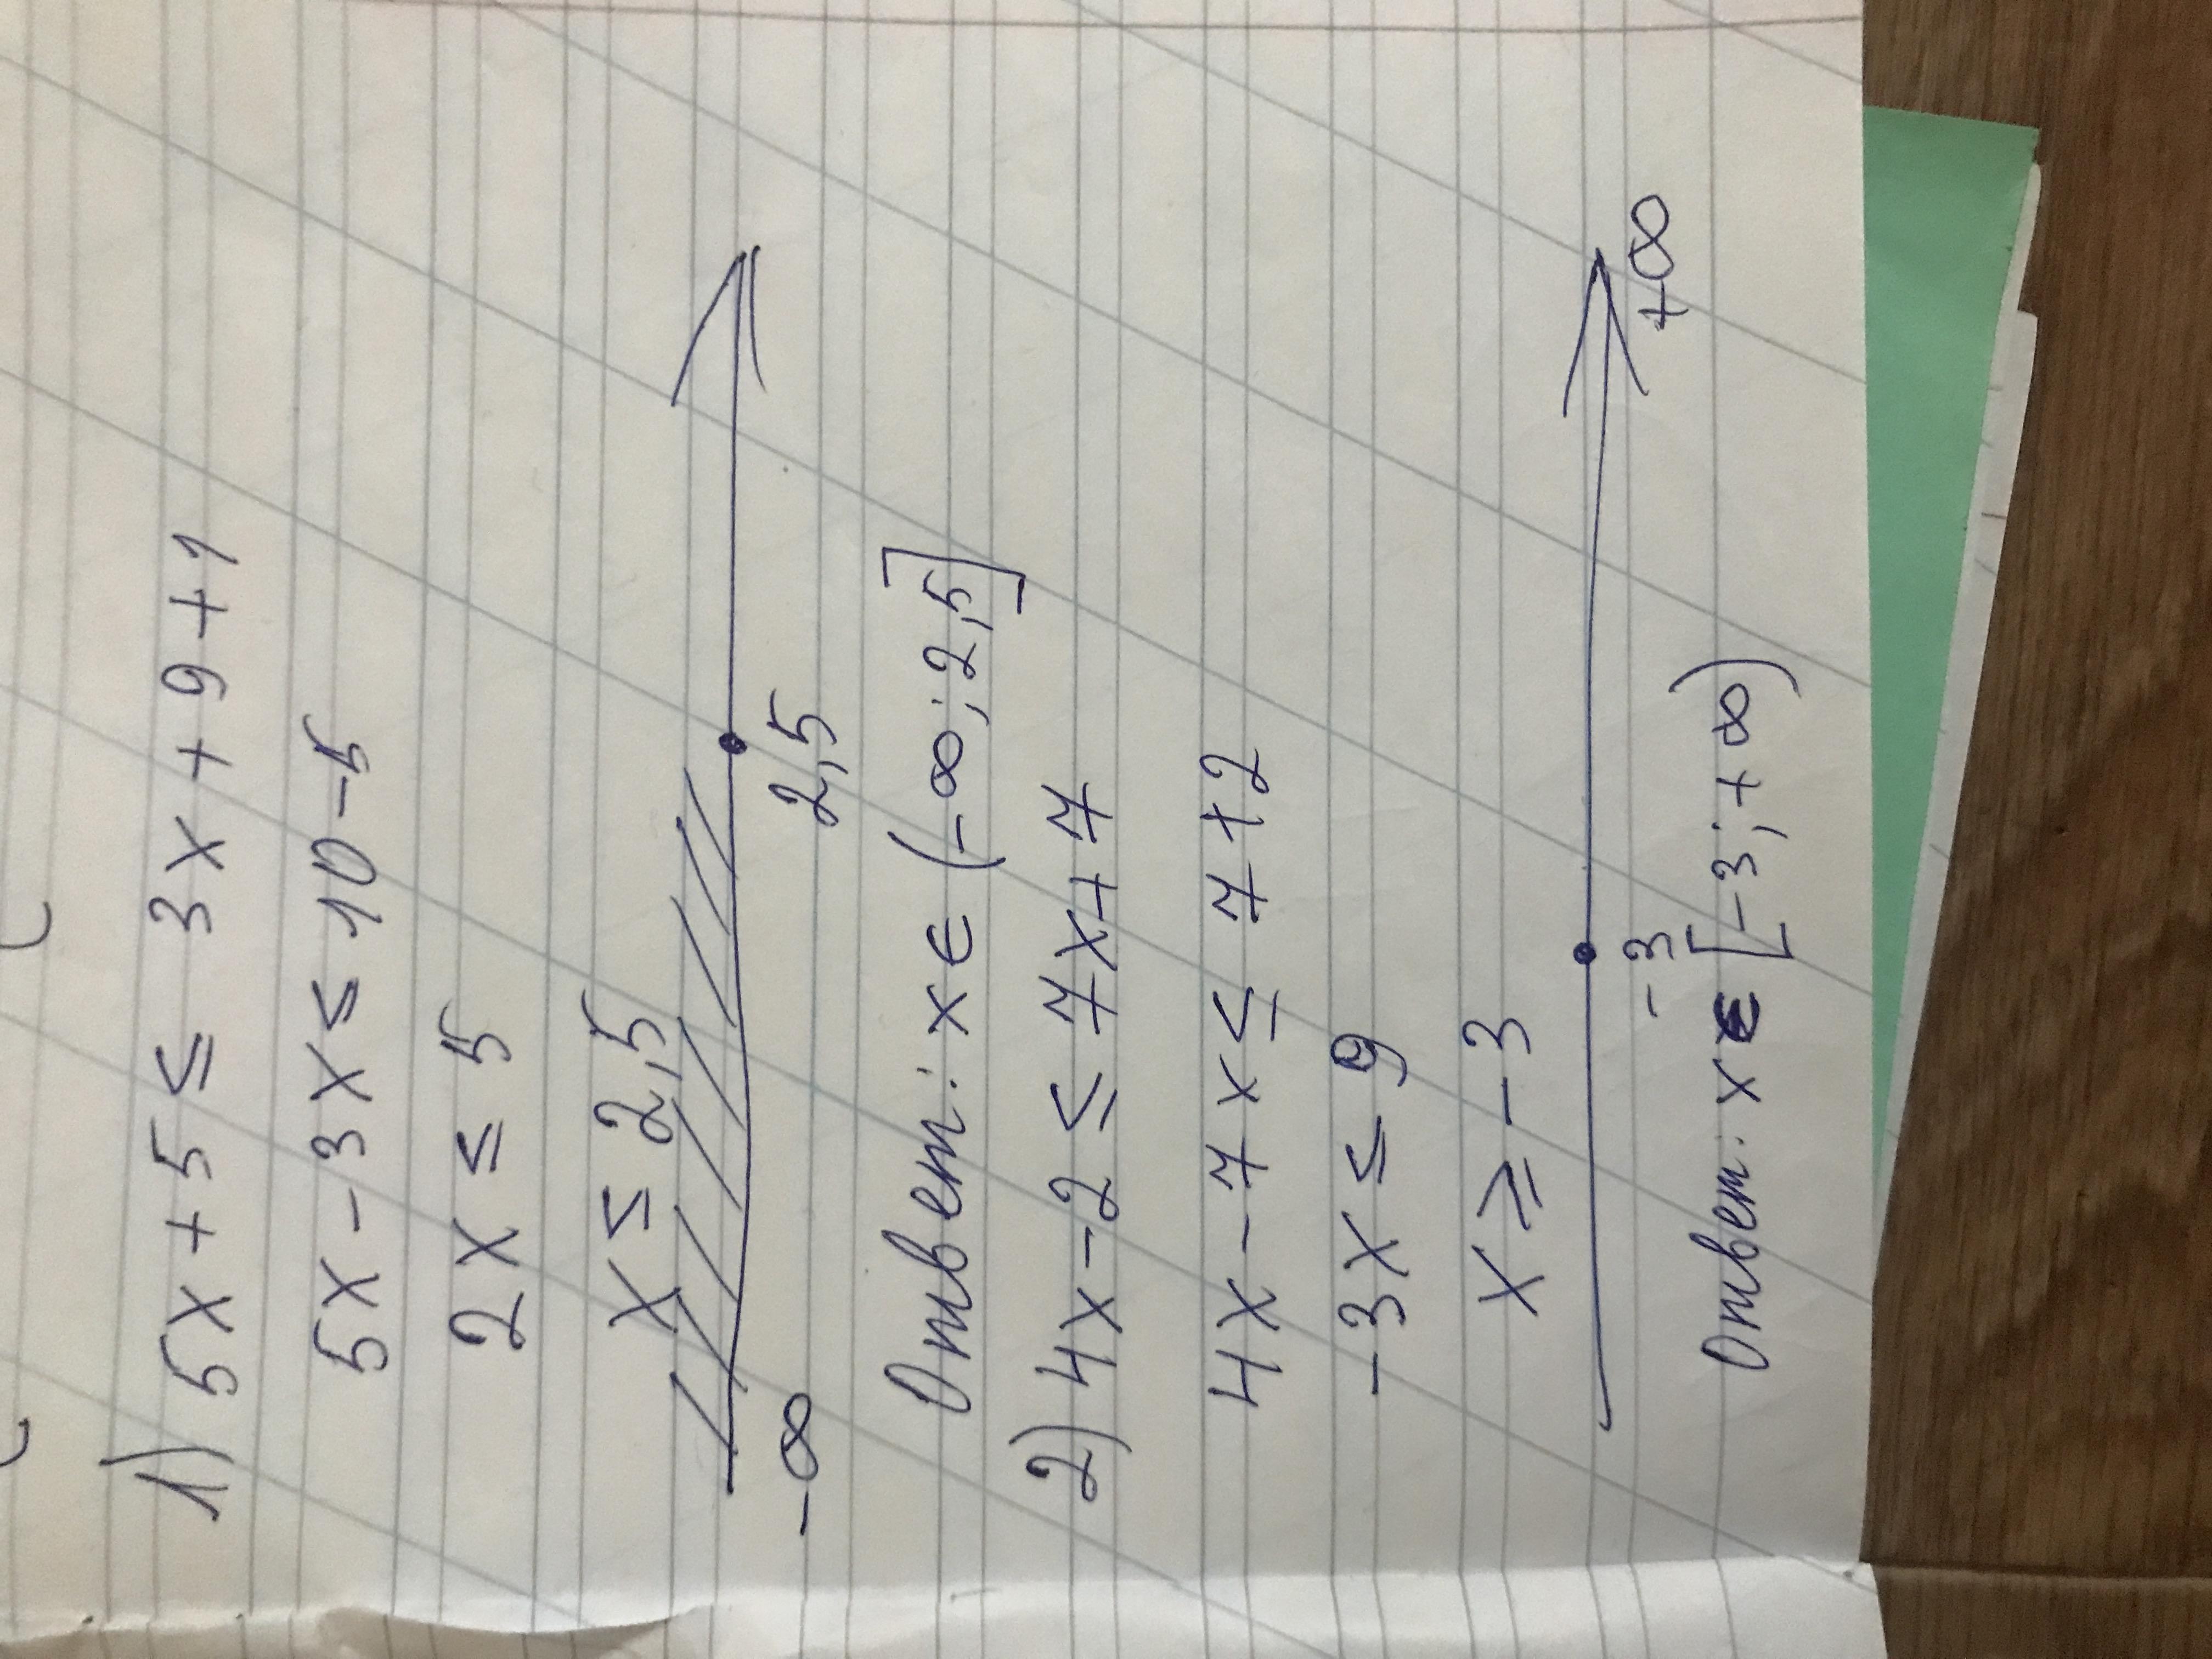 1) 5x + 5 ≤ 3x + 9 + 1
5x - 3x ≤ 10 - 5
2x ≤ 5
x ≤ 2,5
-∞ 2,5
Ответ: x ∈ (-∞; 2,5]
2) 4x - 2 ≤ 7x + 7
4x - 7x ≤ 7 + 2
-3x ≤ 9
x ≥ -3
-3 +∞
Ответ: x ∈ [-3; +∞)